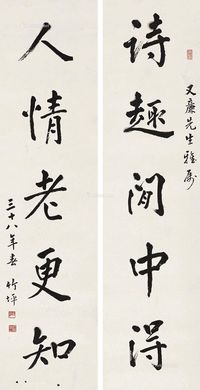 又廉先生雅屬
詩趣閒中得
人情老更知
三十八年春 竹坪